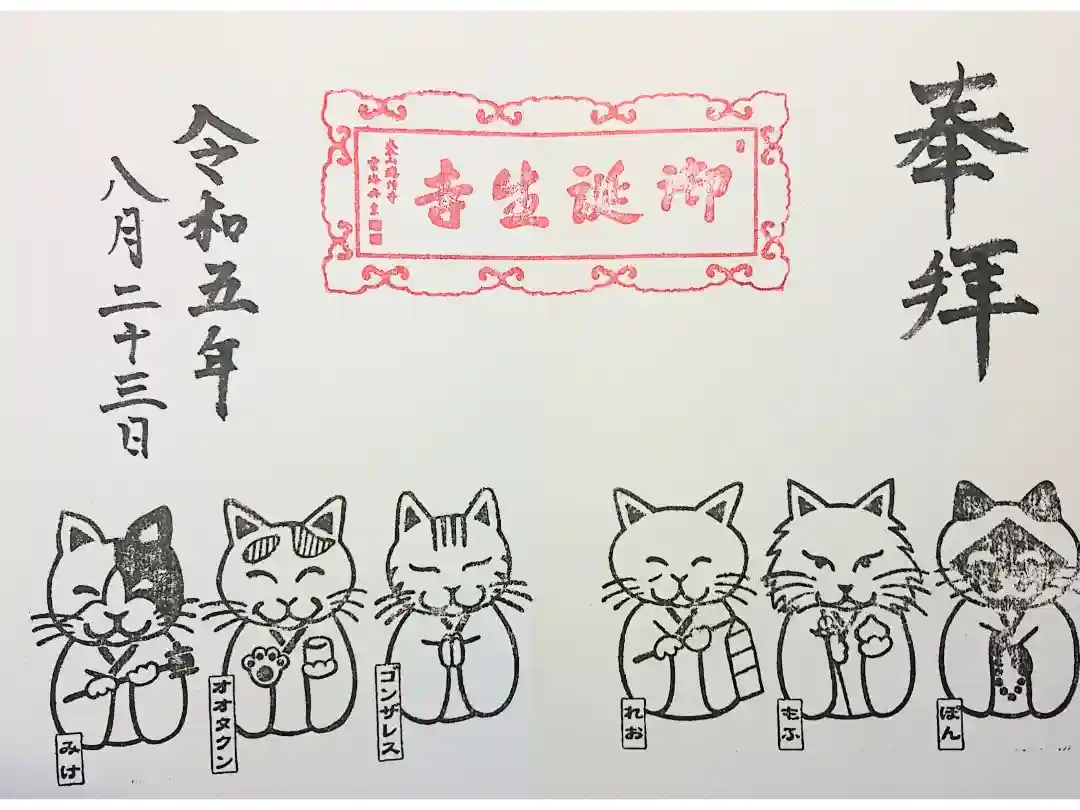 奉拝
御誕生寺
令和五年
八月二十三日
ぽん
もふ
れお
ゴンザレス
オオタクン
みけ